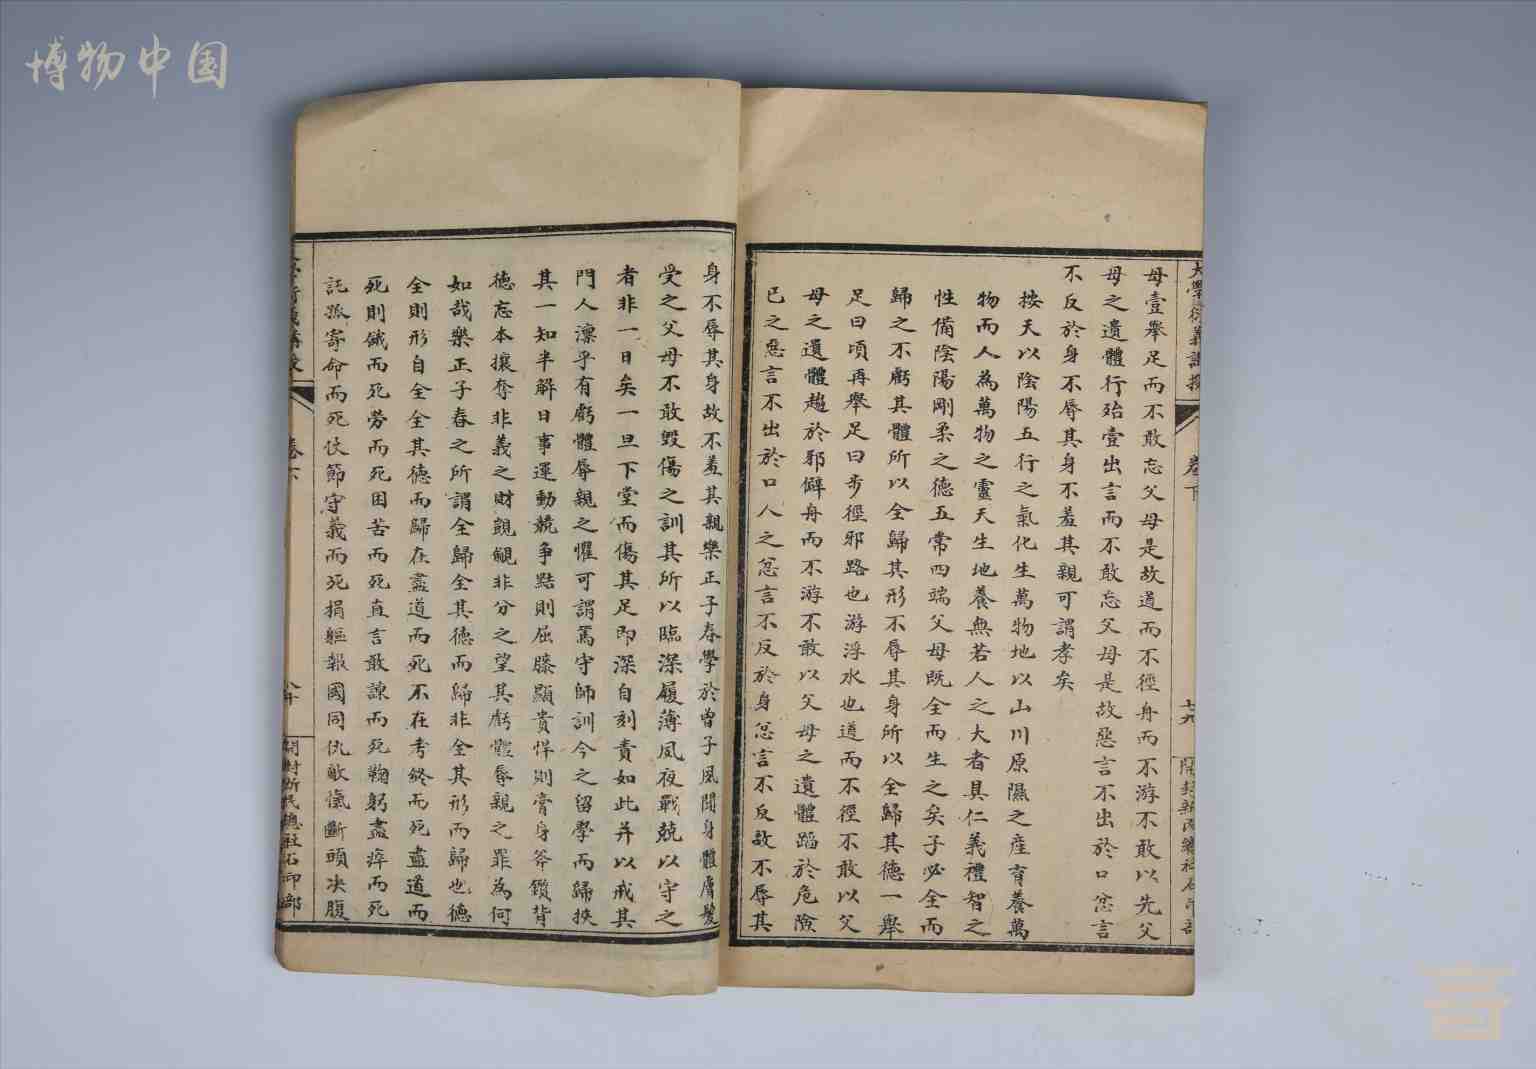 博物中国
母壹舉足而不敢忘父母是故道而不徑舟而不游不敢以先父
母之遺體行殆壹出言而不敢忘父母是故惡言不出於口忿言
不反於身不辱其身不羞其親可謂孝矣
按天以陰陽五行之氣化生萬物地以山川原隰之産育養萬
物而人為萬物之靈天生地養無若人之大者具仁義禮智之
性備陰陽剛柔之德五常四端父母既全而生之矣子必全而
歸之不虧其體所以全歸其形不辱其身所以全歸其德一舉
足曰頃再舉足曰步徑邪路也游浮水也道而不徑不敢以父
母之遺體趨於邪僻舟而不游不敢以父母之遺體蹈於危險
已之惡言不出於口人之忿言不反於身忿言不反故不辱其
卷下
七九
開封新民總社石印部
身不辱其身故不羞其親樂正子春學於曾子風聞身體膚髮
受之父母不敢毀傷之訓其所以臨深履薄夙夜戰兢以守之
者非一日矣一旦下堂而傷其足即深自刻責如此并以戒其
門人凛乎有虧體辱親之懼可謂篤守師訓今之留學而歸挾
其一知半解日事運動競争黠則屈膝顯貴悍則膏身斧鑕背
德忘本攘奪非義之財覬覦非分之望其虧體辱親之罪為何
如哉樂正子春之所謂全歸全其德而歸非全其形而歸也德
全則形自全全其德而歸在盡道而死不在考終而死盡道而
死則餓而死勞而死困苦而死直言敢諫而死鞠躬盡瘁而死
託孤寄命而死仗節守義而死捐軀報國同仇敵愾斷頭决腹
卷下
開封新民總社石印部